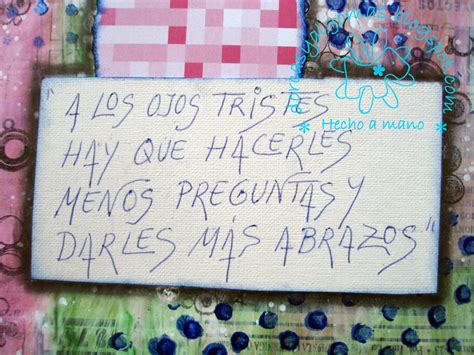 "A LOS OJOS TRISTES
HAY QUE HACERLES
MENOS PREGUNTAS Y
DARLES MÁS ABRAZOS."
* Hecho a mano *